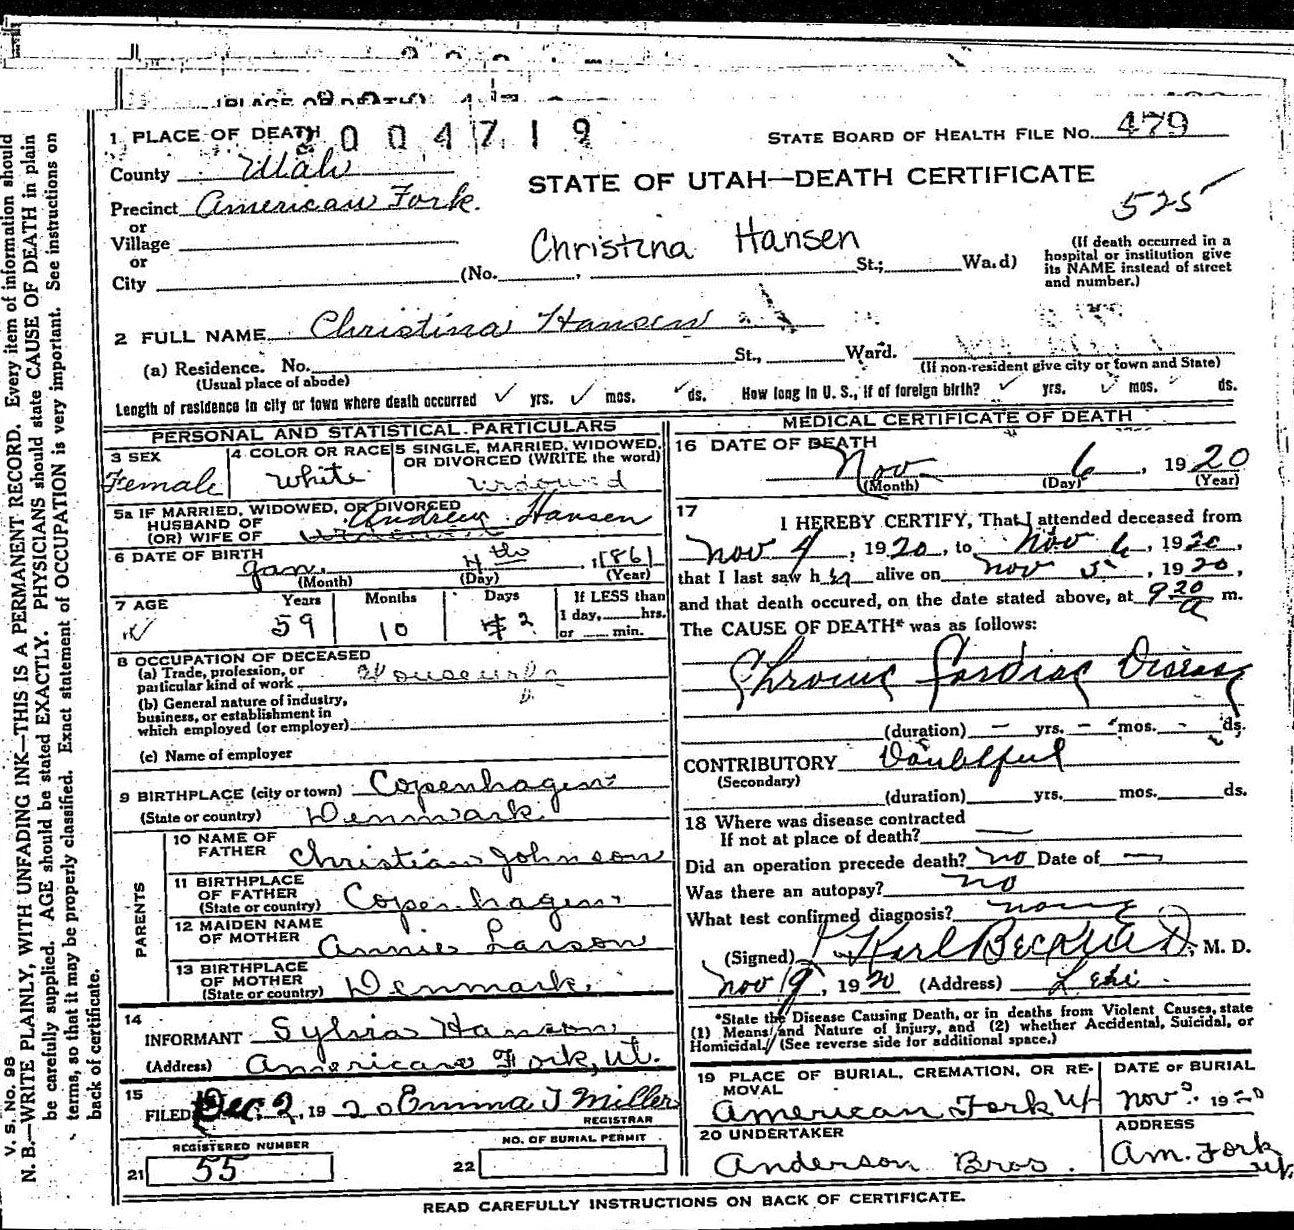 (PLACE OF DEATH)
1 PLACE OF DEATH
004719
STATE BOARD OF HEALTH FILE No. 479
County Utah
STATE OF UTAH—DEATH CERTIFICATE
Precinct American Fork.
525
or
Village
Christina Hansen
or
City (No. , St.; Ward)
(If death occurred in a
hospital or institution give
its NAME instead of street
and number.)
2 FULL NAME Christina Hansen
(a) Residence. No. St., Ward.
(Usual place of abode)
(If non-resident give city or town and State)
Length of residence in city or town where death occurred ✓ yrs. ✓ mos. ✓ ds. How long in U. S., if of foreign birth? ✓ yrs. ✓ mos. ds.
PERSONAL AND STATISTICAL PARTICULARS
3 SEX
Female
4 COLOR OR RACE
White
5 SINGLE, MARRIED, WIDOWED,
OR DIVORCED (WRITE the word)
widowed
5a IF MARRIED, WIDOWED, OR DIVORCED
HUSBAND OF
(OR) WIFE OF
Andrew Hansen
6 DATE OF BIRTH
Jan. 4th, 1861
(Month) (Day) (Year)
7 AGE Years Months Days
59 10 2
If LESS than
1 day, hrs.
or min.
8 OCCUPATION OF DECEASED
(a) Trade, profession, or
particular kind of work Housewife
(b) General nature of industry,
business, or establishment in
which employed (or employer)
(c) Name of employer
9 BIRTHPLACE (city or town) Copenhagen
(State or country) Denmark
PARENTS
10 NAME OF
FATHER Christian Johnson
11 BIRTHPLACE
OF FATHER
(State or country) Copenhagen
12 MAIDEN NAME
OF MOTHER Annie Larson
13 BIRTHPLACE
OF MOTHER
(State or country) Denmark.
14
INFORMANT Sylvia Hanson
(Address) American Fork, Ut.
15
FILED Dec. 2, 1920 Emma J Miller
REGISTRAR
REGISTERED NUMBER
21 55
NO. OF BURIAL PERMIT
22
MEDICAL CERTIFICATE OF DEATH
16 DATE OF DEATH
Nov 6, 1920
(Month) (Day) (Year)
17
I HEREBY CERTIFY, That I attended deceased from
Nov 4, 1920, to Nov 6, 1920,
that I last saw her alive on Nov 5, 1920,
and that death occured, on the date stated above, at 9 20 a m.
The CAUSE OF DEATH* was as follows:
Chronic Cardiac Disease
(duration) — yrs. — mos. - ds.
CONTRIBUTORY Doubtful
(Secondary)
(duration) yrs. mos. ds.
18 Where was disease contracted
If not at place of death? —
Did an operation precede death? no Date of —
Was there an autopsy? no
What test confirmed diagnosis? none
(Signed) Karl , M. D.
Nov 19, 1920 (Address) Lehi
*State the Disease Causing Death, or in deaths from Violent Causes, state
(1) Means and Nature of Injury, and (2) whether Accidental, Suicidal, or
Homicidal. (See reverse side for additional space.)
19 PLACE OF BURIAL, CREMATION, OR RE-
MOVAL
American Fork Ut
DATE OF BURIAL
Nov 1920
20 UNDERTAKER
Anderson Bros.
ADDRESS
Am. Fork
Ut.
READ CAREFULLY INSTRUCTIONS ON BACK OF CERTIFICATE.
V. S. No. 98
N. B.—WRITE PLAINLY, WITH UNFADING INK—THIS IS A PERMANENT RECORD. Every item of information should
be carefully supplied. AGE should be stated EXACTLY. PHYSICIANS should state CAUSE OF DEATH in plain
terms, so that it may be properly classified. Exact statement of OCCUPATION is very important. See instructions on
back of certificate.